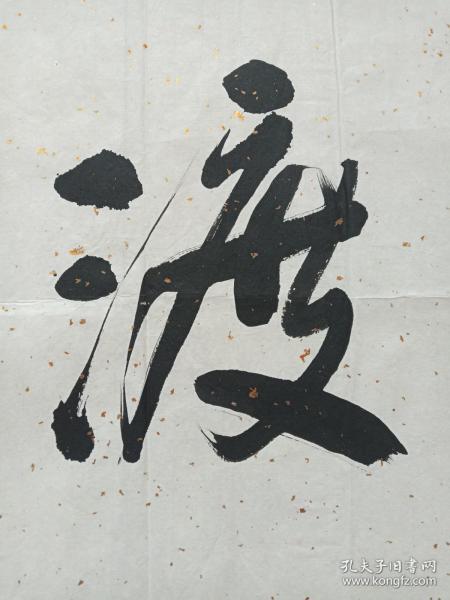 渡
孔夫子旧书网
www.kongfz.com